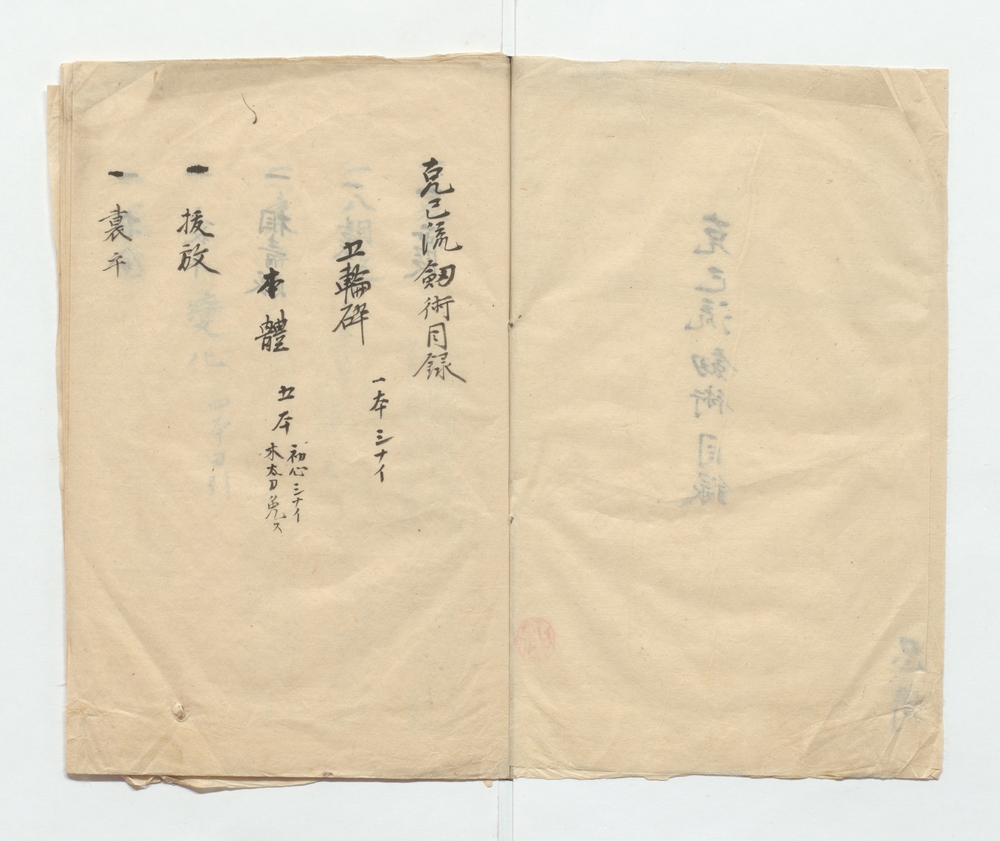 克己流劔術目録
五輪砕
一本ミナイ
本體
五本
初心ミナイ
木太刀免ス
一 抜放
一 裏平